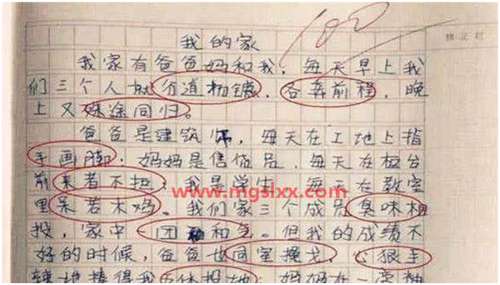 100
我的家
我家有爸爸妈和我，每天早上我
们三个人就分道扬镳，各奔前程，晚
上又殊途同归。
爸爸是建筑师，每天在工地上指
手画脚，妈妈是售货员，每天在柜台
前来者不拒，我是学生，每天在教室
里呆若木鸡。我们家三个成员臭味相
投，家中一团和气。但我的成绩不
好的时候，爸爸也同室操戈，心狠手
辣地揍得我五体投地，妈妈在一旁
www.mgslxx.com